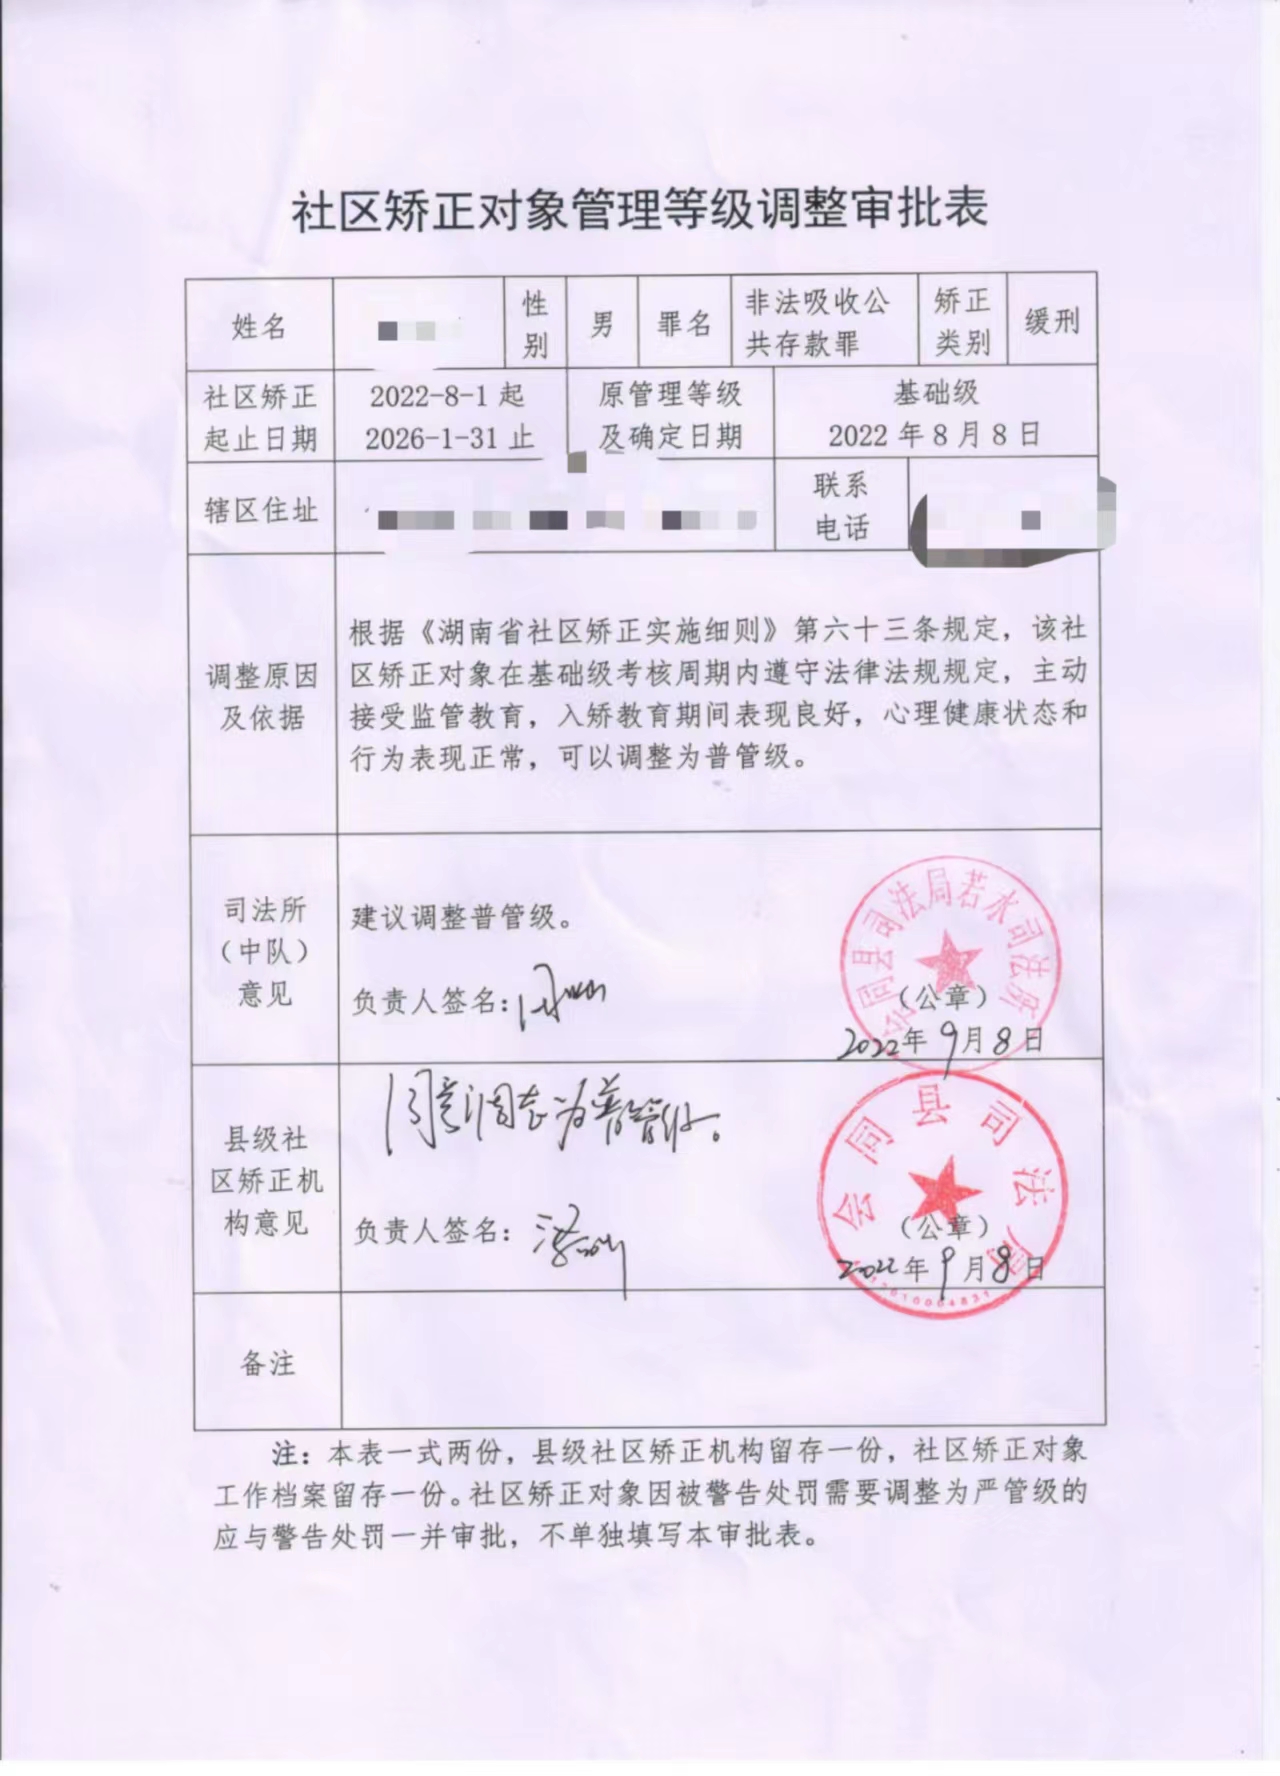 社区矫正对象管理等级调整审批表
姓名
性别
男
罪名
非法吸收公
共存款罪
矫正
类别
缓刑
社区矫正
起止日期
2022-8-1起
2026-1-31止
原管理等级
及确定日期
基础级
2022年8月8日
辖区住址
联系
电话
调整原因
及依据
根据《湖南省社区矫正实施细则》第六十三条规定，该社
区矫正对象在基础级考核周期内遵守法律法规规定，主动
接受监管教育，入矫教育期间表现良好，心理健康状态和
行为表现正常，可以调整为普管级。
司法所
（中队）
意见
建议调整普管级。
负责人签名：
会同县司法局若水司法所
（公章）
2022年9月8日
县级社
区矫正机
构意见
同意调整为普管级。
负责人签名：
会同县司法局
（公章）
2022年9月8日
备注
注：本表一式两份，县级社区矫正机构留存一份，社区矫正对象
工作档案留存一份。社区矫正对象因被警告处罚需要调整为严管级的
应与警告处罚一并审批，不单独填写本审批表。